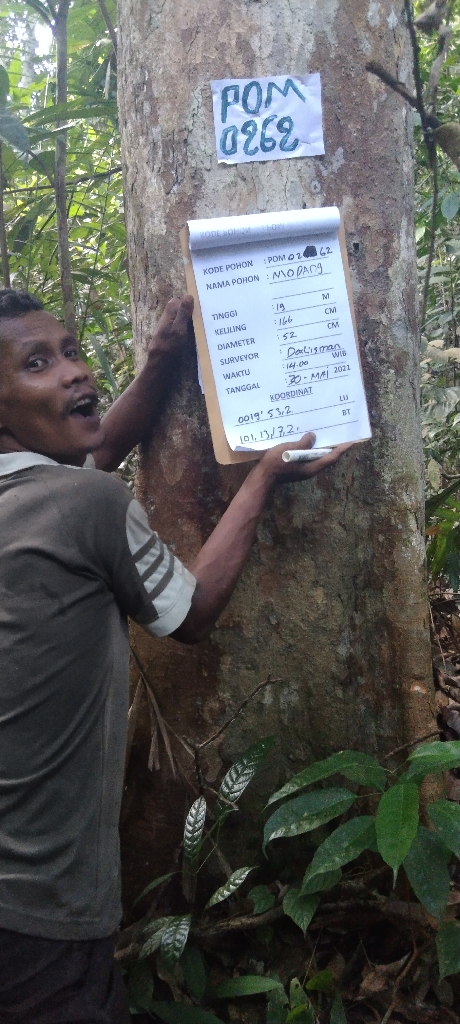 POM
0262
KODE POHON : POM 02 62
NAMA POHON : MODANG
TINGGI : 19 M
KELILING : 166 CM
DIAMETER : 52 CM
SURVEYOR : Dalisman
WAKTU : 14.00 WIB
TANGGAL : 30 - MAI 2021
KOORDINAT
0019' 53,2 LU
101, 13, 17,2, BT